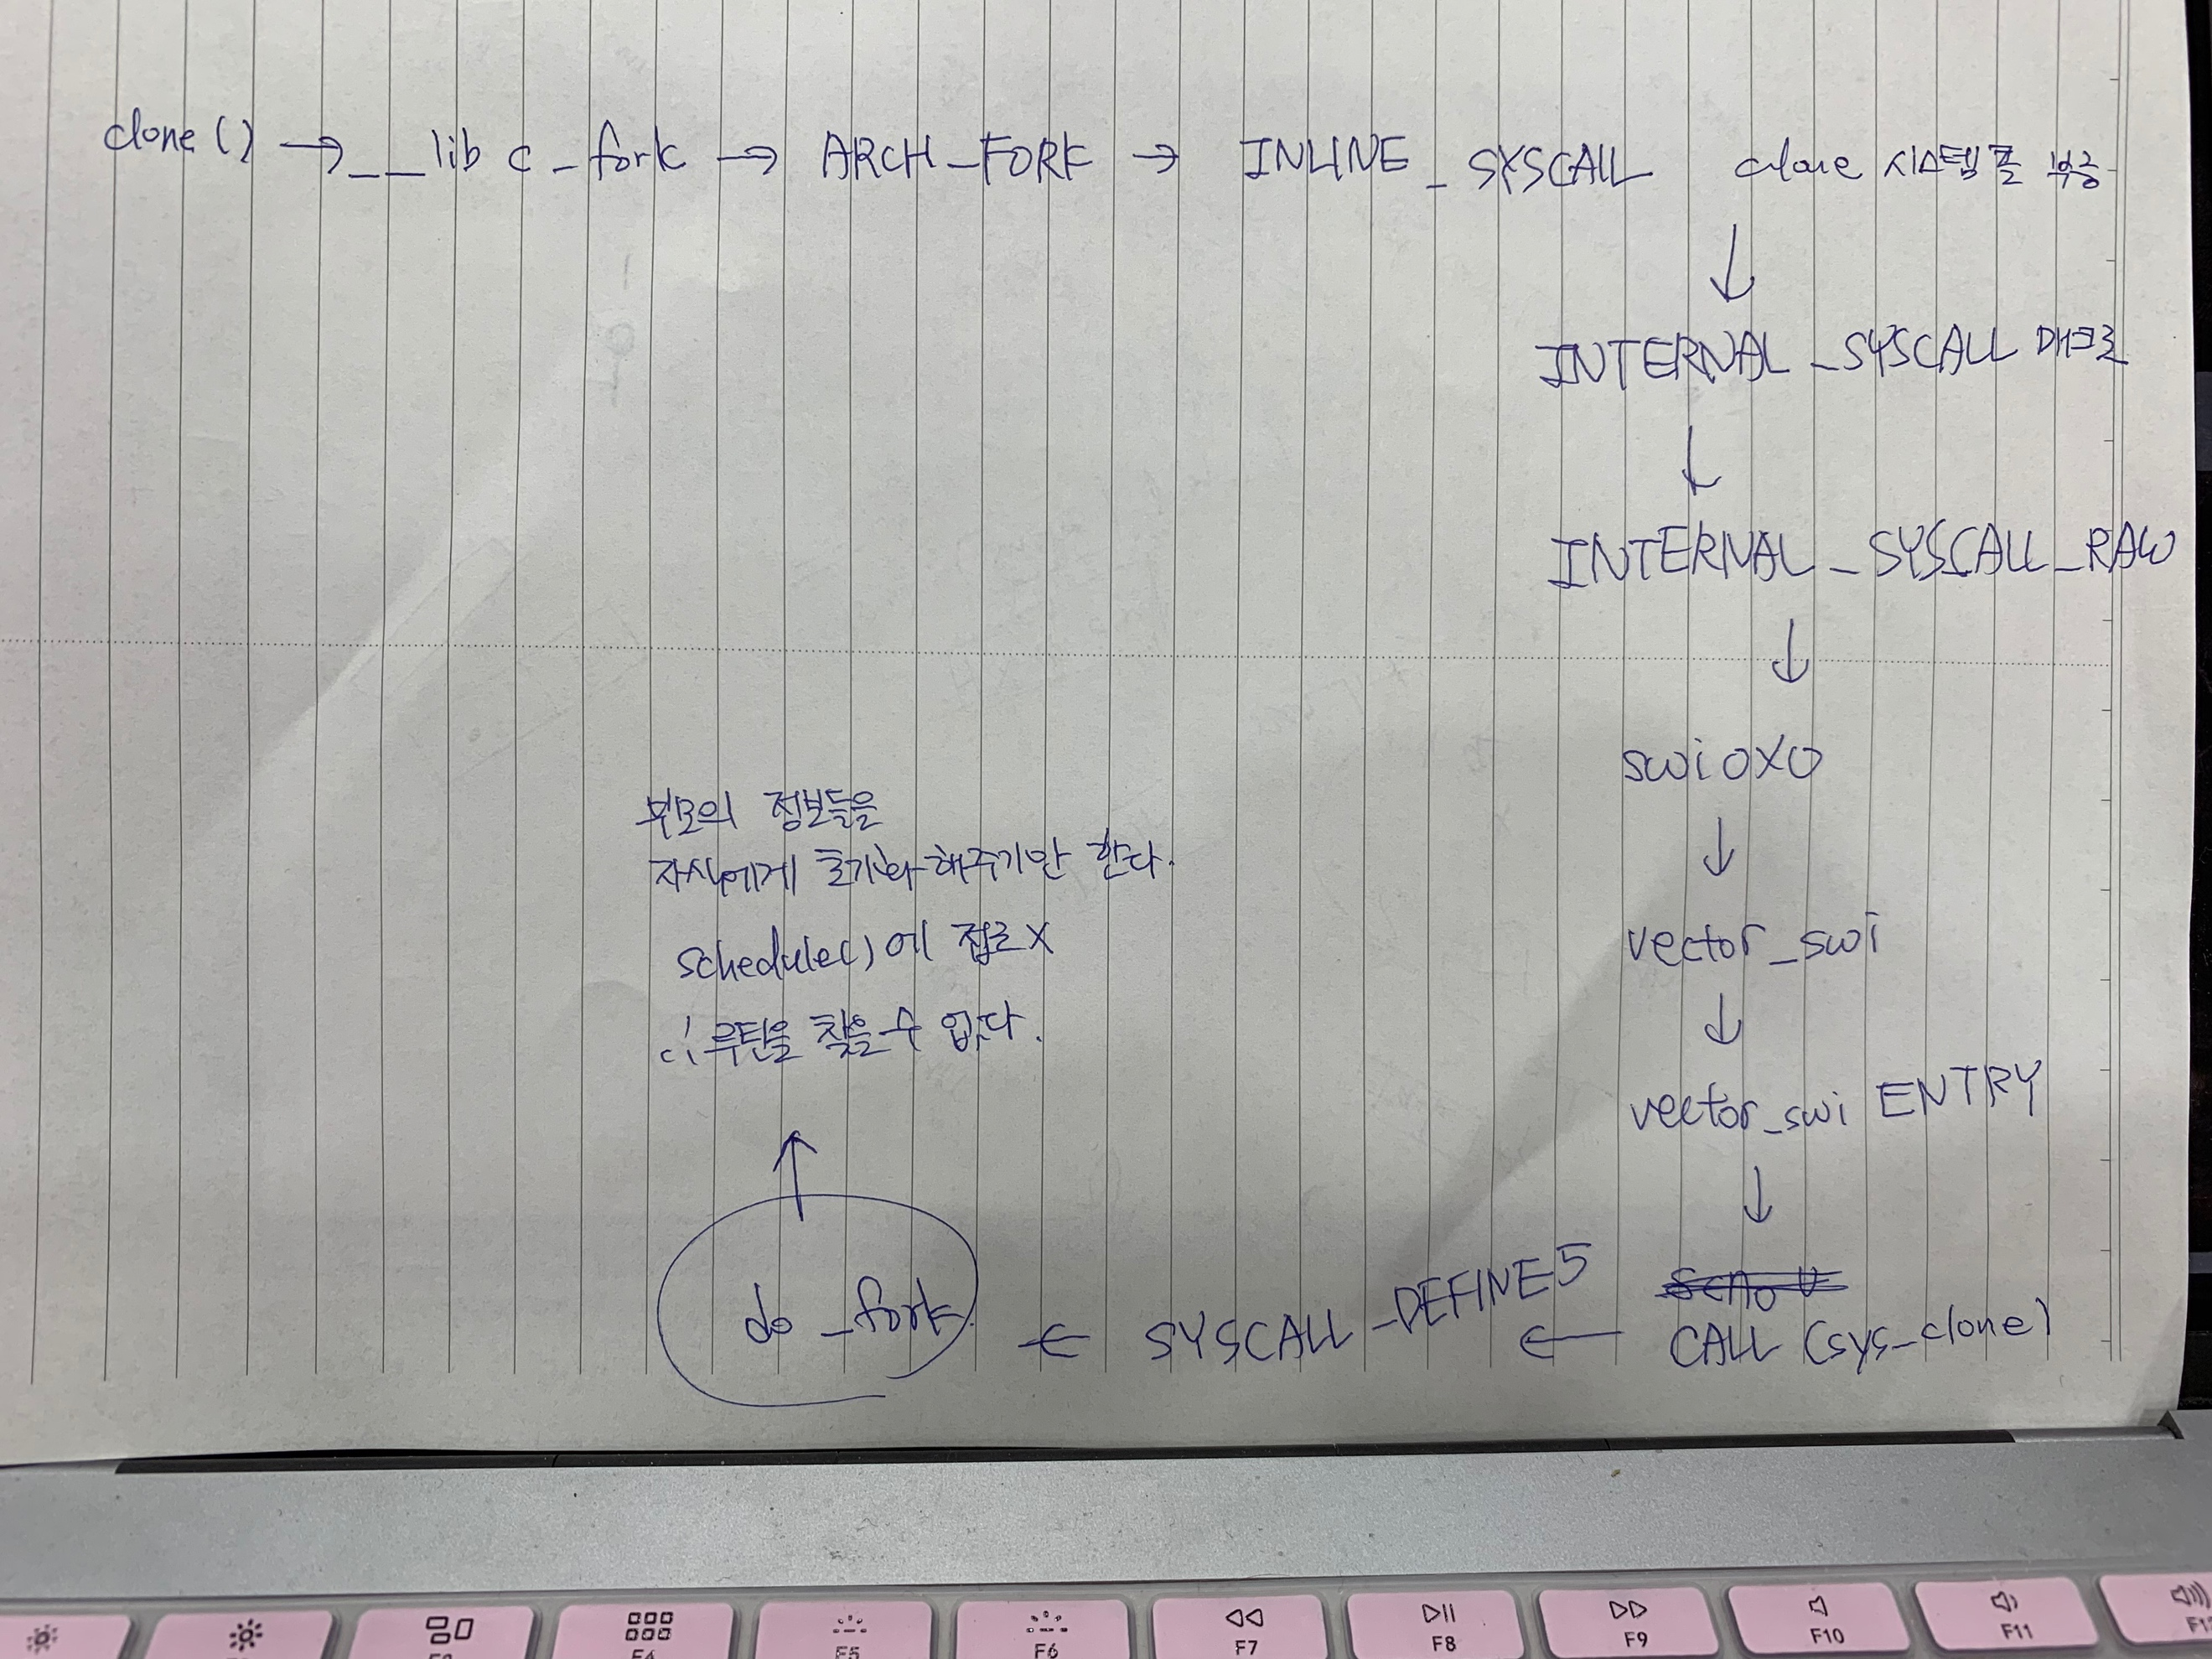 clone() → __lib c_fork → ARCH_FORK → INLINE_SYSCALL clone 시스템 콜 부응
↓
INTERNAL_SYSCALL 매크로
↓
INTERNAL_SYSCALL_RAW
↓
swi 0X0
↓
vector_swi
↓
vector_swi ENTRY
↓
CALL (sys_clone)
← SYSCALL_DEFINE5
← do_fork
↑
부모의 정보들을
자식에게 초기화 해주기만 한다.
schedule()에 접근 X
∴ 루틴을 찾을 수 없다.
F4
F5
F6
F7
F8
F9
F10
F11